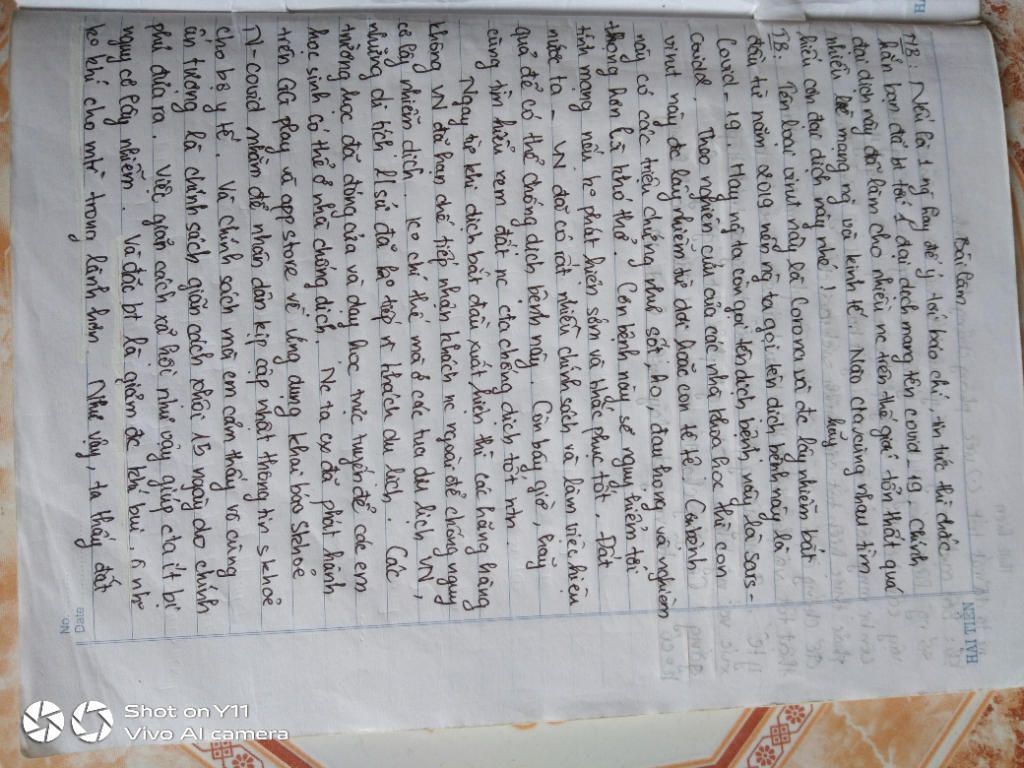 HẢI TIẾN
Date
No
Bài làm
MB: Nếu là 1 ng hay để ý tới báo chí, tin tức thì chắc
hẳn bạn đã bt tới 1 đại dịch mang tên covid-19. Chính
đại dịch này đã làm cho nhiều nc trên thế giới tổn thất quá
nhiều về mạng ng và kinh tế. Nào cta cùng nhau tìm
hiểu cơn đại dịch này nhé!
TB: Tên loại virut này là Corona và đc lây nhiễm bắt
đầu từ năm 2019 nên ng ta gọi tên dịch bệnh này là
Covid-19. Hay ng ta còn gọi tên dịch bệnh này là sars-
Covid. Theo nghiên cứu của các nhà khoa học thì con
virut này đc lây nhiễm từ dơi hoặc con tê tê. Căn bệnh
này có các triệu chứng như sốt, ho, đau họng và nghiêm
trọng hơn là khó thở. Cơn bệnh này sẽ nguy hiểm tới
tính mạng nếu ko phát hiện sớm và khắc phục tốt. Đất
nước ta - VN đã có rất nhiều chính sách và làm việc hiệu
quả để có thể chống dịch bệnh này. Còn bây giờ, hãy
cùng tìm hiểu xem đất nc cta chống dịch tốt nha.
Ngay từ khi dịch bắt đầu xuất hiện thì các hãng hàng
không VN đã hạn chế tiếp nhận khách nc ngoài để chống nguy
cơ lây nhiễm dịch. Ko chỉ thế mà ở các tua du lịch VN,
những di tích lịch sử đã ko tiếp n khách du lịch. Các
trường học đã đóng cửa và dạy học trực tuyến để các em
học sinh có thể ở nhà chống dịch. Nc ta cx đã phát hành
trên GG Play và app store về ứng dụng khai báo skhoẻ
N-covid nhằm để nhân dân kịp cập nhật thông tin skhoẻ
cho bộ y tế. Và chính sách mà em cảm thấy vô cùng
ấn tượng là chính sách giãn cách xhội 15 ngày do chính
phủ đưa ra. Việc giãn cách xã hội như vậy giúp cta ít bị
nguy cơ lây nhiễm. Và đặc bt là giảm đc khí bụi,
ko khí cho mtr trong lành hơn. Như vậy, ta thấy đất
Shot on Y11
Vivo AI camera